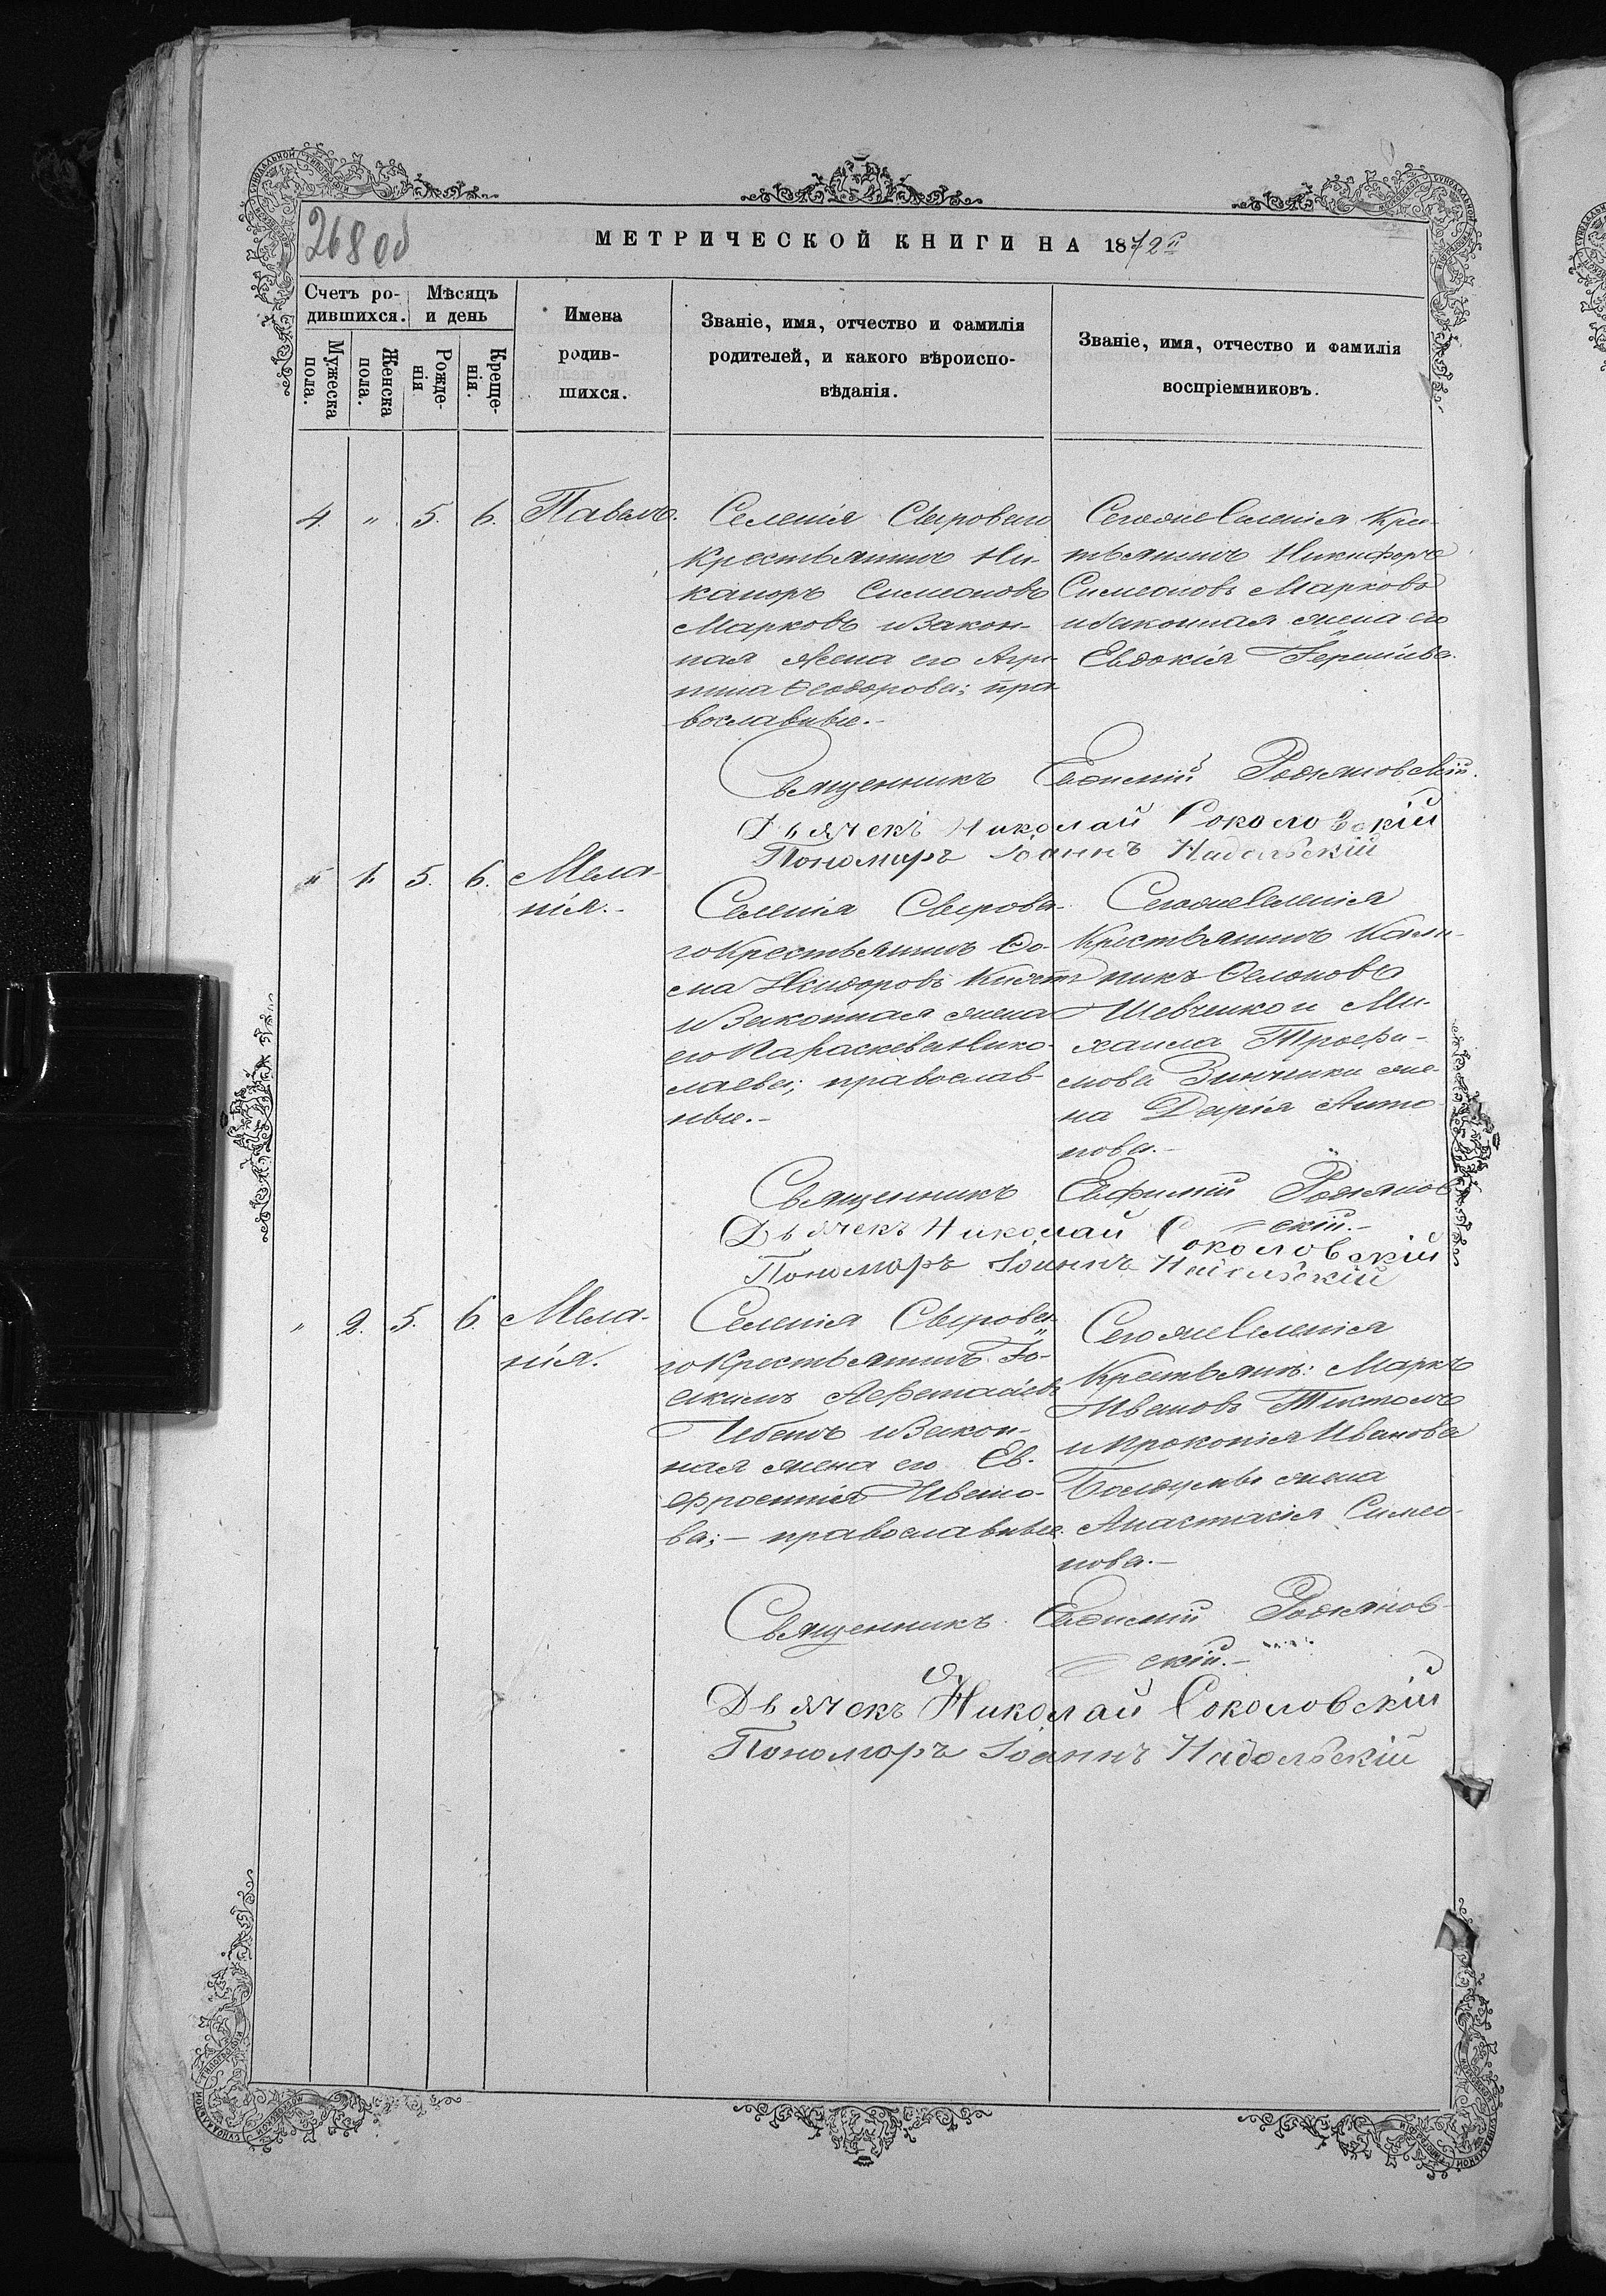 268 об
МЕТРИЧЕСКОЙ КНИГИ НА 1872й
Счетъ ро-
дившихся.
Мѣсяцъ
и день
Мужеска
пола.
Женска
пола.
Рожде-
нія
Креще-
нія.
Имена
родив-
шихся.
Званіе, имя, отчество и фамилія
родителей, и какого вѣроиспо-
вѣданія.
Званіе, имя, отчество и фамилія
воспріемниковъ.
4. " 5. 6. Павелъ.
Селенія Сыроваго
Крестьянинъ Ни-
каноръ Симеоновъ
Марковъ и закон-
ная жена его Агри-
пина Ѳеодорова; пра-
вославные.-
Тогоже Селенія Кре-
тьянинъ Никифоръ
Симеоновъ Марковъ
и законная жена его
Евдокія
Священникъ Евѳимій
Дьячекъ Николай Соколовскій
Пономаръ Іоаннъ Надольскій
" 1. 5. 6. Мела-
нія.-
Селенія Сырова-
го Крестьянинъ Ѳо-
ма Исидоровъ
и законная жена
его Параскева Нико-
лаева; православ-
ные.-
Тогоже Селенія
Крестьянинъ Кали-
никъ
Шевченко и Ми-
хаила Трофи-
мова Зинченки же-
на Дарія Анто
нова.-
Священникъ Евфимій
скій.-
Дьячекъ Николай Соколовскій
Пономаръ Іоаннъ Надольскій
" 2. 5. 6. Мела-
нія.
Селенія Сырова-
го Крестьянинъ Іо-
акимъ
и закон-
ная жена его Ев-
фросинія Ивано-
ва;- православные
Тогоже Селенія
Крестьянинъ: Маркъ
Ивановъ
и Прокопія Иванова
жена
Анастасія Симео-
нова.-
Священникъ Евѳимій
скій.-
Дьячекъ Николай Соколовскій
Пономаръ Іоаннъ Надольскій